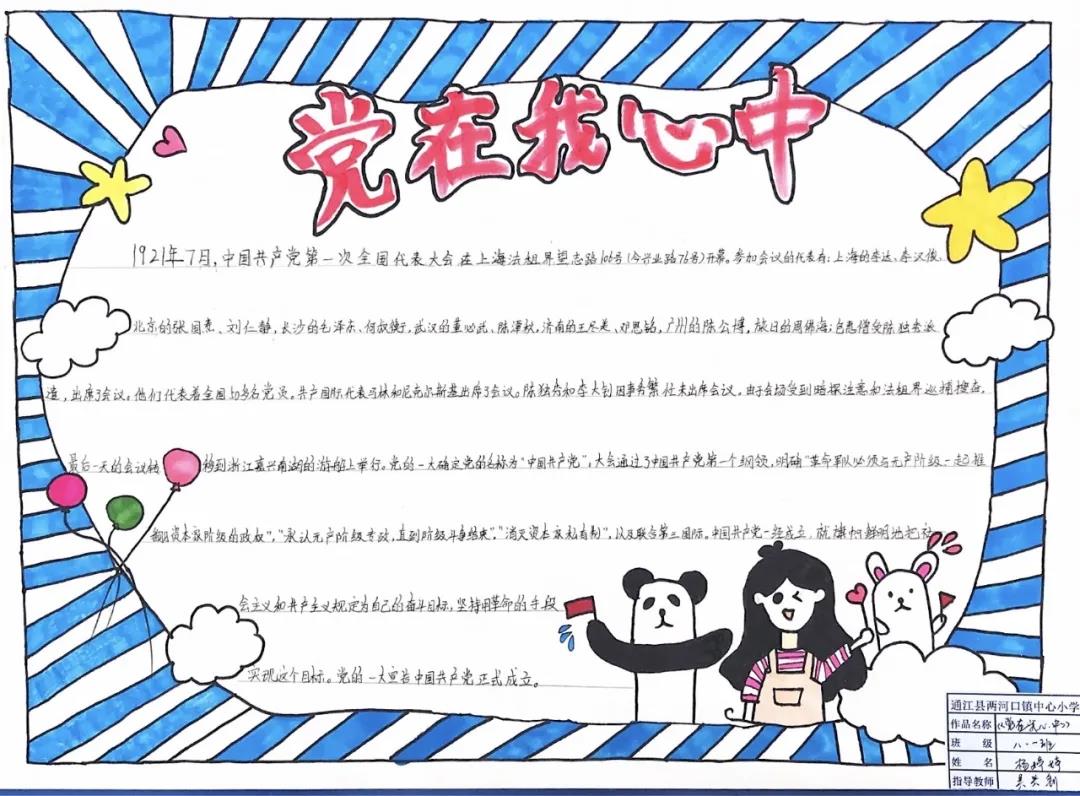 党在我心中
1921年7月,中国共产党第一次全国代表大会在上海法租界望志路106号(今兴业路76号)开幕。参加会议的代表有:上海的李达、李汉俊、
北京的张国焘、刘仁静,长沙的毛泽东、何叔衡,武汉的董必武、陈潭秋,济南的王尽美、邓恩铭,广州的陈公博,旅日的周佛海;包惠僧受陈独秀派
遣,出席了会议。他们代表着全国50多名党员。共产国际代表马林和尼克尔斯基出席了会议。陈独秀和李大钊因事务繁忙未出席会议。由于会场受到暗探注意和法租界巡捕搜查,
最后一天的会议转移到浙江嘉兴南湖的游船上举行。党的一大确定党的名称为"中国共产党",大会通过了中国共产党第一个纲领,明确"革命军队必须与无产阶级一起推
翻资本家阶级的政权","承认无产阶级专政,直到阶级斗争结束","消灭资本家私有制",以及联合第三国际。中国共产党一经成立,就旗帜鲜明地把社
会主义和共产主义规定为自己的奋斗目标,坚持用革命的手段
实现这个目标。党的一大宣告中国共产党正式成立。
通江县两河口镇中心小学
作品名称 《党在我心中》
班 级 八.一班
姓 名 杨婷婷
指导教师